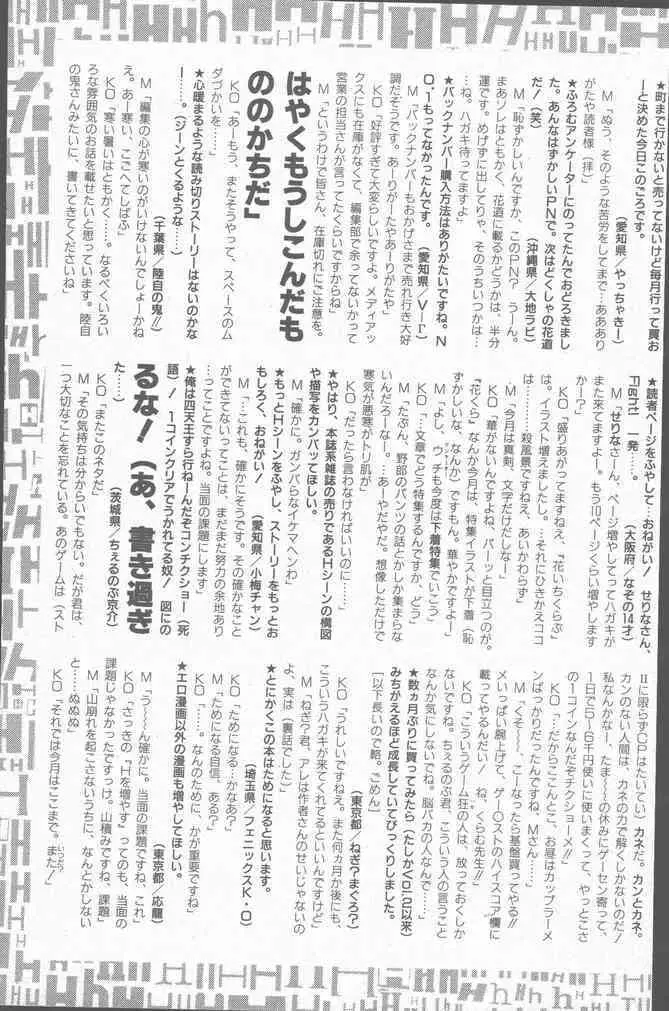 ★町まで行かないと売ってないけど毎月行って買お
ーと決めた今日このごろです。
(愛知県／やっちゃきー)
M「ぬう、そのような苦労をしてまで…あああり
がたや読者様(拝)」
★ふろむアンケーターにのってたんでおどろきまし
た。あんなはずかしいPNで。次はどくしゃの花道
だ！(笑)
(沖縄県／大地ラビ)
M「恥ずかしいんですか、このPN？　うーん。
まあソレはともかく、花道に載るかどうかは、半分
運です。めげずに出してりゃ、そのうちいつかは…
ね。ハガキ待ってますよ」
★バックナンバー購入方法はありがたいですね。N
O.1もってなかったんです。
(愛知県／V－Γ)
M「バックナンバーもおかげさまで売れ行き大好
調だそうです。あーりがーたやあーりがたや」
KO「好評すぎて大変らしいですよ。メディアッ
クスにも在庫がなくて、編集部で余ってないかって
営業の担当さんが言ってたくらいですからね」
M「というわけで皆さん、在庫切れにご注意を。
はやくもうしこんだも
ののかちだ」
KO「あーもう、またそうやって、スペースのム
ダづかいを……」
★心暖まるような読み切りストーリーはないのかな
ー……。(ジーンとくるような……)
(千葉県／陸自の鬼!!)
M「編集の心が寒いのがいけないんでしょーかね
え。あー寒い、こごへてしぱふ」
KO「寒い暑いはともかく……。なるべくいろい
ろな雰囲気のお話を載せたいと思っています。陸自
の鬼さんみたいに、書いてきてくださいね」
★読者ページをふやして…おねがい！　せりなさん、
Fight！　一発……。
(大阪府／なぞの14才)
M「せりなさん、ページ増やしてってハガキが
また来てますよー。もう10ページくらい増やします
かー？」
KO「盛りあがってますねえ、『花いちくらぶ』
は。イラスト増えましたし。…それにひきかえココ
は……殺風景ですねえ、あいかわらず」
M「今月は真剣、文字だけだしな」
KO「華がないんですよね、パーッと目立つのが。
『花くら』なんか今月は、特集イラストが下着(恥
ずかしいな、なんか)ですもん。華やかですよー」
M「よし、ウチも今度は下着特集でいこう」
KO「…文章でどう特集するんですか、どう」
M「たぶん、野郎のパンツの話とかしか集まらな
いんだろーなー。…あーやだやだ。想像しただけで
寒気が悪寒がトリ肌が」
KO「だったら言わなければいいのに……」
★やはり、本誌系雑誌の売りであるHシーンの構図
や描写をガンバッてほしい。
M「確かに。ガンバらなイケマヘンわ」
★もっとHシーンをふやし、ストーリーをもっとお
もしろく、おねがい！
(愛知県／小梅チャン)
M「…これも、確かにそうです。その確かなこと
ができてないってことは、まだまだ努力の余地あり
……ってことですよね。当面の課題にします」
★俺は四天王すら行ねーんだぞコンチクショー(死
語)！　1コインクリアでうかれてる奴！　図にの
るな！(あ、書き過ぎ
た……)
(茨城県／ちえるのぶ京介)
KO「またこのネタだ」
M「その気持ちは分からいでもない。だが君は、
一つ大切なことを忘れている。あのゲームは(スト
IIに限らずCPはたいてい)カネだ。カンとカネ。
カンのない人間は、カネの力で解くしかないのだ！
私なんかな、たま〜〜の休みにゲーセン寄って、
1日で5〜6千円使いに使いまくって、やっとこさ
の1コインなんだぞチクショーメ!!」
KO「…だからここんとこ、お昼はカップラーメ
ンばっかりだったんですね、Mさん……」
M「くそ〜〜、こーなったら基盤買ってやる!!
メいっぱい腕上げて、ゲ○ストのハイスコア欄に
載ってやるんだい！　ね、くらむ先生!!」
KO「こういうゲーム狂の人は、放っておくしか
ないですね。ちえるのぶ君、こういう人の言うこと
なんか気にしないでね。脳バカの人なんで……」
★数ヵ月ぶりに買ってみたら(たしかVol.2以来)
みちがえるほど成長していてびっくりしました。
[以下長いので略。ごめん]
(東京都／ねぎ？まぐろ？)
KO「うれしいですねえ。また何ヵ月か後にも、
こういうハガキが来てくれてるといいんですけど」
M「ねぎ？君、アレは作者さんのせいじゃないの
よ、実は(裏話でした)」
★とにかくこの本はためになると思います。
(埼玉県／フェニックスK・O)
KO「ためになる…かなあ？」
M「ためになる自信、ある？」
KO「……。なんのために、かが重要ですね」
★エロ漫画以外の漫画も増やしてほしい。
(東京都／応龍)
M「う〜〜ん確かに。当面の課題ですね、これ」
KO「さっきの『Hを増やす』ってのも、当面の
課題じゃなかったですっけ。山積みですね、課題」
M「山崩れを起こさないうちに、なんとかしない
と……ぬぬぬ」
KO「それでは今月はここまで。また！」